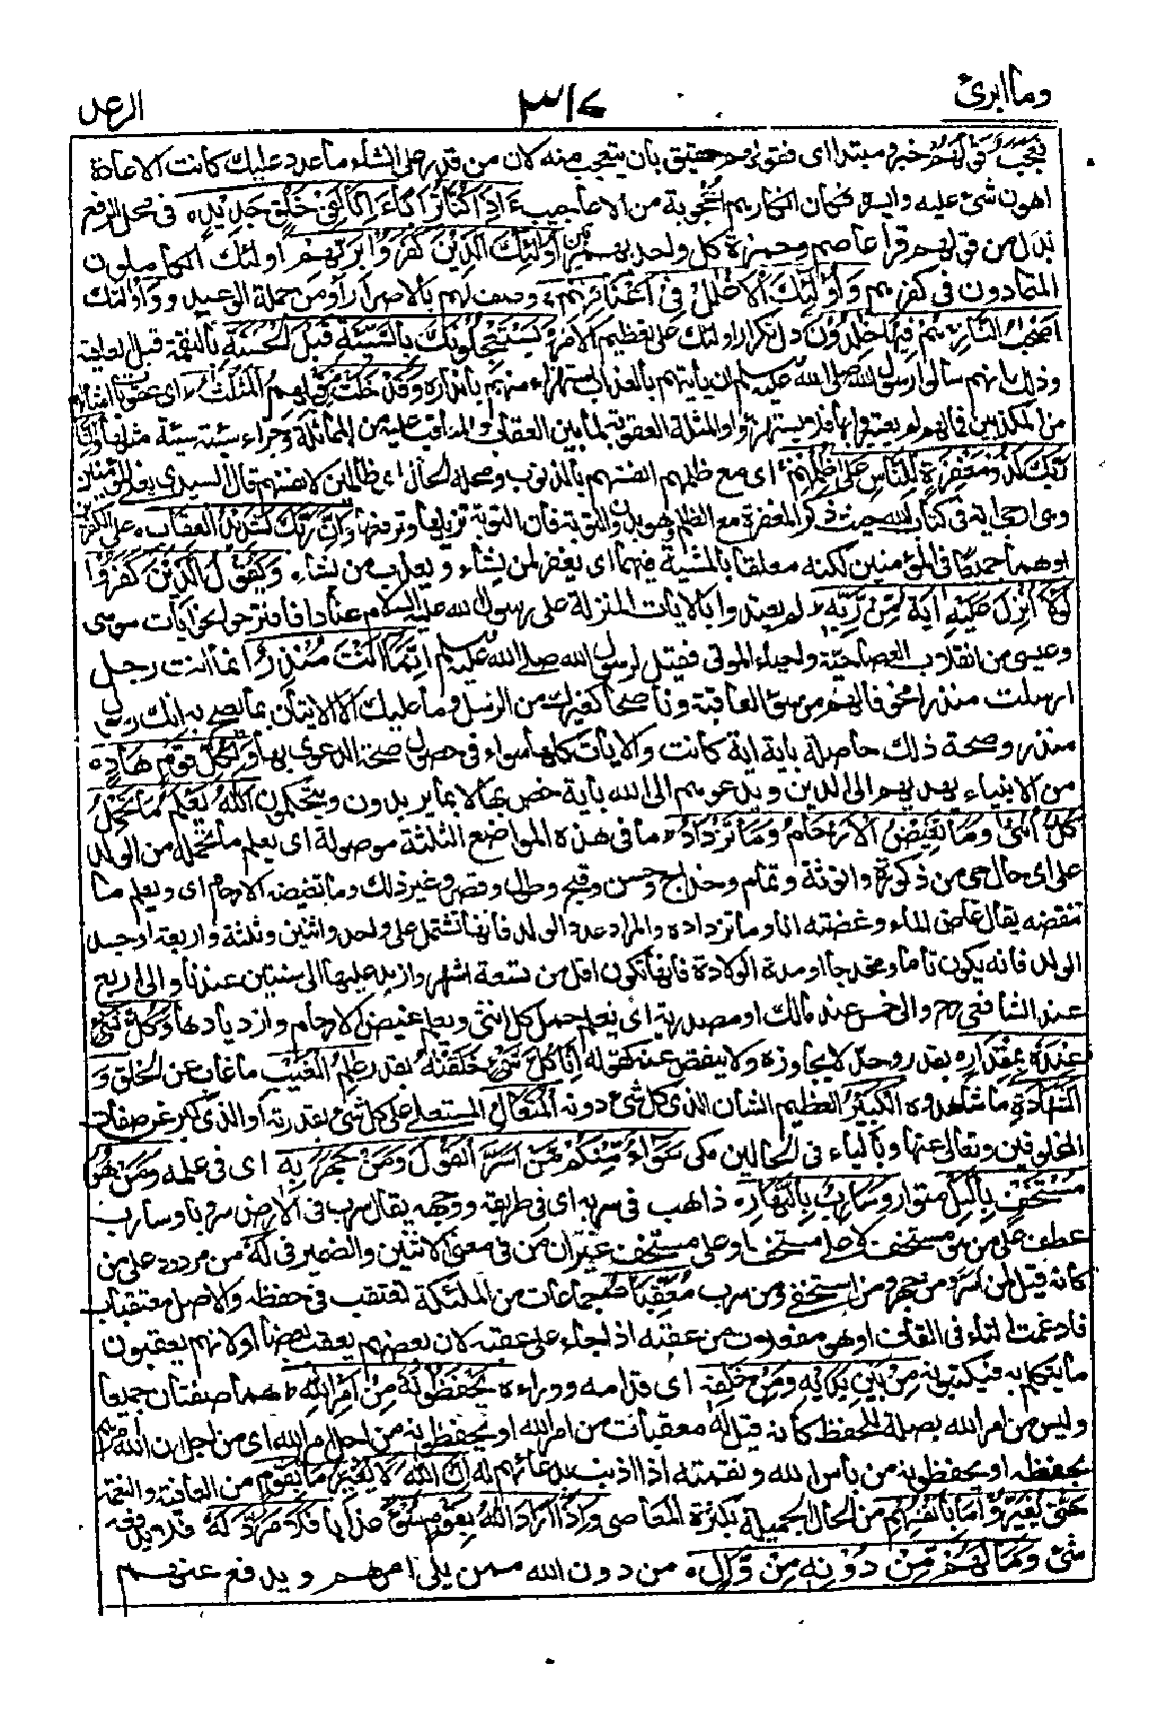 وما ابرئ ٣١٤ الرعد
فَعَجَبٌ قَوْلُهُمْ خبر ومبتدا اى فقولهم حقيق بان يتعجب منه لان من قدر على انشاء ما عدد عليك كانت الاعادة
اهون شئ عليه وايسره فكان انكارهم اعجوبة من الاعاجيب ءَاِذَا كُنَّا تُرَابًا ءَاِنَّا لَفِىْ خَلْقٍ جَدِيْدٍ فى محل الرفع
بدل من قولهم قرأ عاصم وحمزة كل واحد بهمزتين اُولٰٓئِكَ الَّذِيْنَ كَفَرُوْا بِرَبِّهِمْ اولئك الكاملون
المتمادون فى كفرهم وَاُولٰٓئِكَ الْاَغْلٰلُ فِىْٓ اَعْنَاقِهِمْ وصف لهم بالاصرار او من جملة الوعيد وَاُولٰٓئِكَ
اَصْحٰبُ النَّارِ هُمْ فِيْهَا خٰلِدُوْنَ دل تكرار اولئك على تعظيم الامر وَيَسْتَعْجِلُوْنَكَ بِالسَّيِّئَةِ قَبْلَ الْحَسَنَةِ بالنقمة قبل العافية
وذلك انهم سألوا رسول الله صلى الله عليه وسلم ان يأتيهم بالعذاب استهزاء منهم بانذاره وَقَدْ خَلَتْ مِنْ قَبْلِهِمُ الْمَثُلٰتُ اى عقوبات امثالهم
من المكذبين فما لهم لم يعتبروا بها فلا يستهزؤا والمثلة العقوبة لما بين العقاب والمعاقب عليه من المماثلة وجزاء سيئة سيئة مثلها وَاِنَّ
رَبَّكَ لَذُوْ مَغْفِرَةٍ لِّلنَّاسِ عَلٰى ظُلْمِهِمْ اى مع ظلمهم انفسهم بالذنوب ومحله الحال اى ظالمين لانفسهم قال السدى يعنى المؤمنين
وهى ارجى اية فى كتاب الله حيث ذكر المغفرة مع الظلم وهو بدون التوبة فان التوبة تزيلها وترفعها وَاِنَّ رَبَّكَ لَشَدِيْدُ الْعِقَابِ على الكافرين
او هما جميعا فى المؤمنين لكنه معلقا بالمشية فيهما اى يغفر لمن يشاء ويعذب من يشاء وَيَقُوْلُ الَّذِيْنَ كَفَرُوْا
لَوْلَآ اُنْزِلَ عَلَيْهِ اٰيَةٌ مِّنْ رَّبِّهٖ لم يعتدوا بالايات المنزلة على رسول الله عليه السلام عنادا فاقترحوا نحو ايات موسى
وعيسى من انقلاب العصا حية واحياء الموتى فقيل لرسول الله صلى الله عليه وسلم اِنَّمَآ اَنْتَ مُنْذِرٌ انما انت رجل
ارسلت منذرا مخوفا لهم من سوء العاقبة وناصحا كغيرك من الرسل وما عليك الا الاتيان بما يصح به انك رسول
منذر وصحة ذلك حاصلة باية اية كانت والايات كلها سواء فى حصول صحة الدعوى بها وَلِكُلِّ قَوْمٍ هَادٍ
من الانبياء يهديهم الى الدين ويدعوهم الى الله باية خص بها لا بما يريدون ويتحكمون اَللّٰهُ يَعْلَمُ مَا تَحْمِلُ
كُلُّ اُنْثٰى وَمَا تَغِيْضُ الْاَرْحَامُ وَمَا تَزْدَادُ ما فى هذه المواضع الثلثة موصولة اى يعلم ما تحمله من الولد
على اى حال هى من ذكورة وانوثة وتمام وخداج وحسن وقبح وطول وقصر وغير ذلك وما تغيضه الارحام اى ويعلم ما
تنقصه يقال غاض الماء وغضته انا وما تزداده والمراد عدد الولد فانها تشتمل على واحد واثنين وثلثة واربعة او جسد
الولد فانه يكون تاما ومخدجا او مدة الولادة فانها تكون اقل من تسعة اشهر وازيد عليها الى سنتين عندنا والى اربع
عند الشافعى رح والى خمس عند مالك او مصدرية اى يعلم حمل كل انثى ويعلم غيض الارحام وازديادها وَكُلُّ شَىْءٍ
عِنْدَهٗ بِمِقْدَارٍ بقدر وحد لا يجاوزه ولا ينقص عنه كقوله اِنَّا كُلَّ شَىْءٍ خَلَقْنٰهُ بقدر عٰلِمُ الْغَيْبِ ما غاب عن الخلق وَ
الشَّهَادَةِ ما شاهدوه الْكَبِيْرُ العظيم الشان الذى كل شئ دونه الْمُتَعَالِ المستعلى على كل شئ بقدرته او الذى كبر عن صفات
المخلوقين وتعالى عنها وبالياء فى الحالين مكى سَوَآءٌ مِّنْكُمْ مَّنْ اَسَرَّ الْقَوْلَ وَمَنْ جَهَرَ بِهٖ اى فى علمه وَمَنْ هُوَ
مُسْتَخْفٍ بِالَّيْلِ متوار وَسَارِبٌ بِالنَّهَارِ ذاهب فى سربه اى فى طريقه ووجهه يقال سرب فى الارض سروبا وسارب
عطف على من هو مستخف لا على مستخف او على مستخف غير ان من فى معنى الاثنين والضمير فى لَهٗ من مردود على من
كانه قيل لمن اسر ومن جهر ومن استخفى ومن سرب مُعَقِّبٰتٌ جماعات من الملئكة تعتقب فى حفظه والاصل معتقبات
فادغمت التاء فى القاف او هو مفعلات من عقبه اذا جاء على عقبه لان بعضهم يعقب بعضا او لانهم يعقبون
ما يتكلم به فيكتبونه مِنْۢ بَيْنِ يَدَيْهِ وَمِنْ خَلْفِهٖ اى قدامه ووراءه يَحْفَظُوْنَهٗ مِنْ اَمْرِ اللّٰهِ هما صفتان جميعا
وليس من امر الله بصلة للحفظ كانه قيل له معقبات من امر الله او يحفظونه من اجل امر الله اى من اجل ان الله امرهم
بحفظه او يحفظونه من بأس الله ونقمته اذا اذنب بدعائهم له اِنَّ اللّٰهَ لَا يُغَيِّرُ مَا بِقَوْمٍ من العافية والنعمة
حَتّٰى يُغَيِّرُوْا مَا بِاَنْفُسِهِمْ من الحال الجميلة بكثرة المعاصى وَاِذَآ اَرَادَ اللّٰهُ بِقَوْمٍ سُوْٓءًا عذابا فَلَا مَرَدَّ لَهٗ فلا يدفعه
شئ وَمَا لَهُمْ مِّنْ دُوْنِهٖ مِنْ وَّالٍ من دون الله ممن يلى امرهم ويدفع عنهم